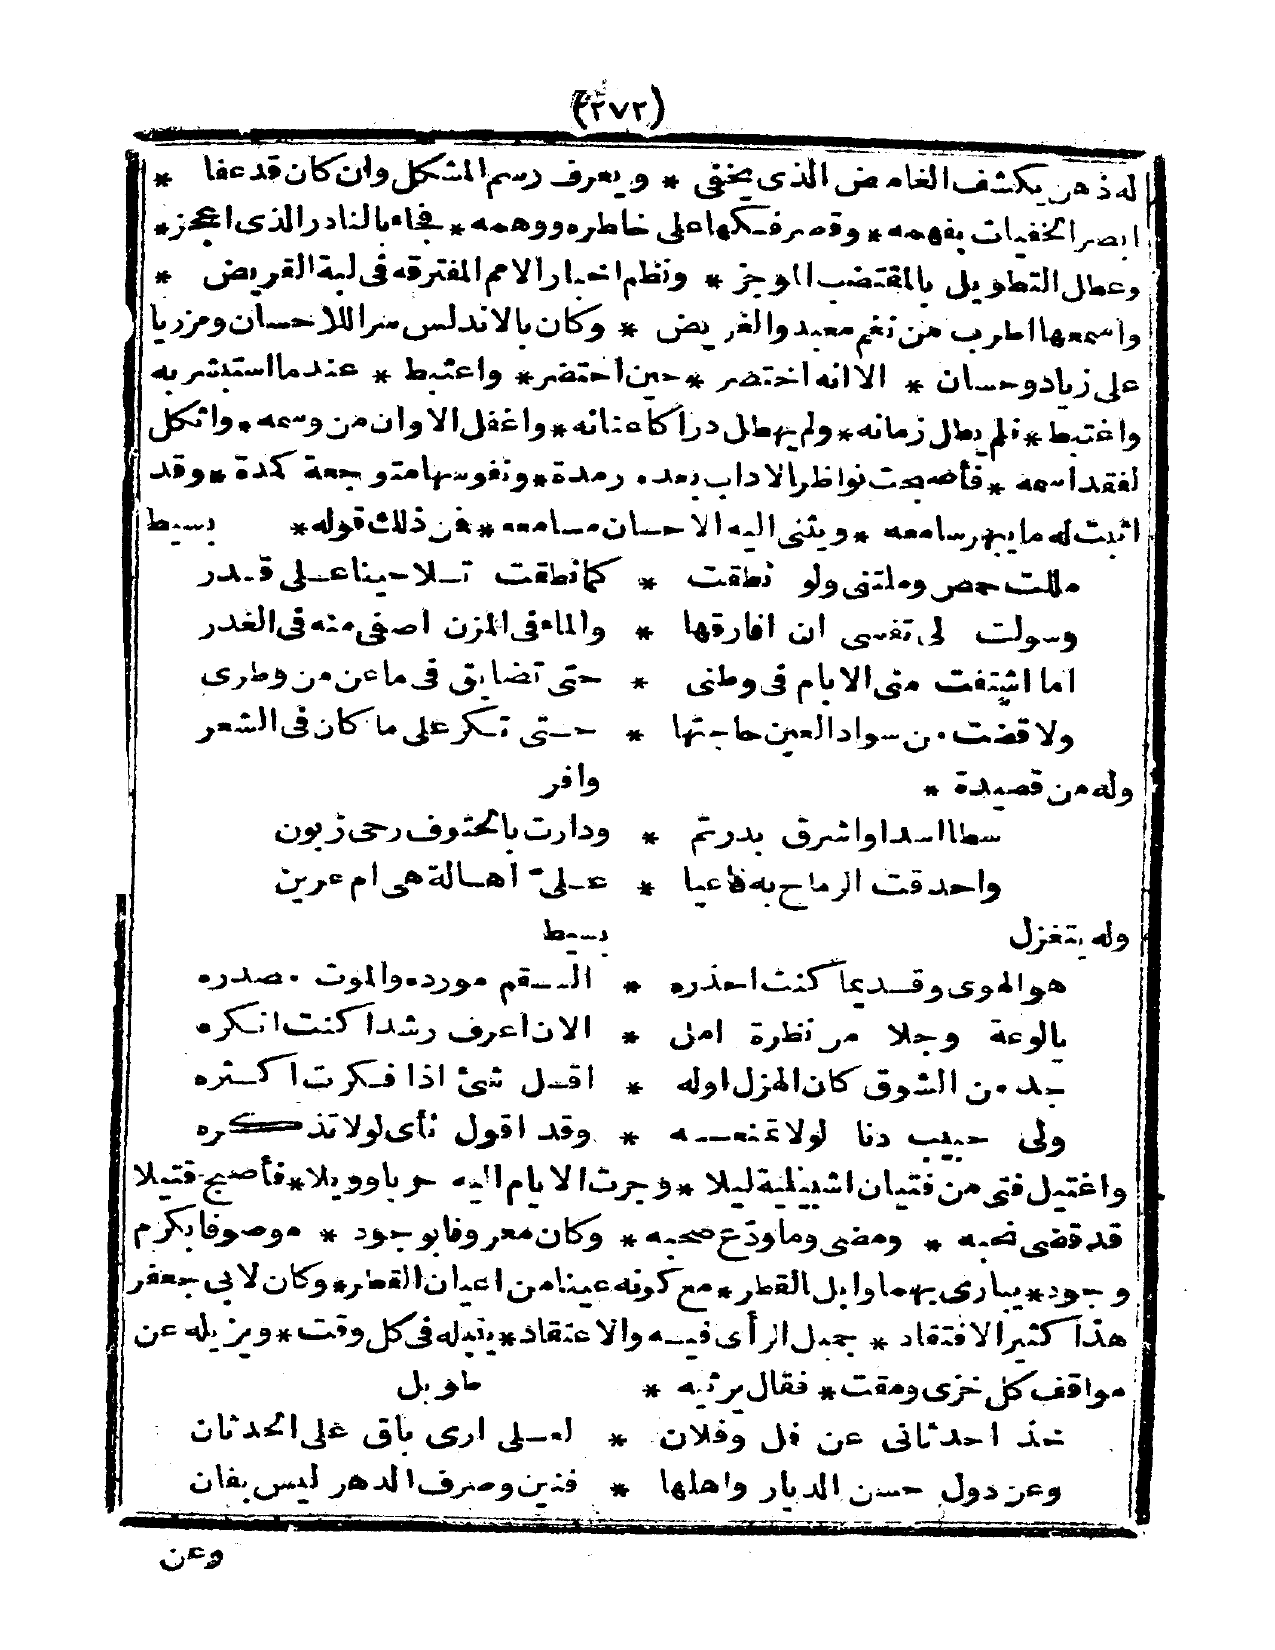 (٢٧٢)
له ذهن يكشف الغامض الذى يخفى * ويعرف رسم المشكل وان كان قد عفا *
ابصر الخفيات بفهمه * وقصر فكها على خاطره ووهمه * فجاء بالنادر الذى اعجز *
وعطل التطويل بالمقتضب الموجز * ونظم اخبار الامم المفترقه فى لبة القريض *
واسمعها اطرب من نغم معبد والغريض * وكان بالاندلس سرا للاحسان ومزريا
على زياد وحسان * الا انه اختضر * حين احتضر * واعتبط * عندما استبشر به
واغتبط * فلم يطل زمانه * ولم يهطل دراكا عنانه * واغفل الاوان من وسمه * واثكل
لفقد اسمه * فأصبحت نواظر الاداب بعده رمدة * ونفوسها متوجعة كمدة * وقد
اثبت له ما يبهر سامعه * ويثنى اليه الاحسان مسامعه * فمن ذلك قوله * بسيط
مللت حمص وملتنى ولو نطقت * كما نطقت تلاحينا على قدر
وسولت لى نفسى ان افارقها * والماء فى المزن اصفى منه فى الغدر
اما اشتفت منى الايام فى وطنى * حتى تضايق فى ما عن من وطرى
ولا قضت من سواد العين حاجتها * حتى تكر على ما كان فى الشعر
وله من قصيدة * وافر
سطا اسدا واشرق بدرتم * ودارت بالحتوف رحى زبون
واحدقت الرماح به فاعيا * على اهالة هى ام عرين
وله يتغزل بسيط
هو الهوى وقديما كنت احذره * السقم مورده والموت مصدره
يا لوعة وجلا من نظرة املى * الان اعرف رشدا كنت انكره
جد من الشوق كان الهزل اوله * اقل شئ اذا فكرت اكثره
ولى حبيب دنا لولا تمنعه * وقد اقول نأى لولا تذكره
واغتيل فتى من فتيان اشبيلية ليلا * وجرت الايام اليه حربا وويلا * فأصبح قتيلا
قد قضى نحبه * ومضى وما ودع صحبه * وكان معروفا بوجود * موصوفا بكرم
وجود * يبارى بهما وابل القطر * مع كونه عينا من اعيان القطر * وكان لابى جعفر
هذا كثير الافتقاد * جميل الرأى فيه والاعتقاد * ينيله فى كل وقت * ويزيله عن
مواقف كل خزى ومقت * فقال يرثيه * طويل
خذ احدثانى عن فل وفلان * لعلى ارى باق على الحدثان
وعن دول حسن الديار واهلها * فنين وصرف الدهر ليس بفان
وعن